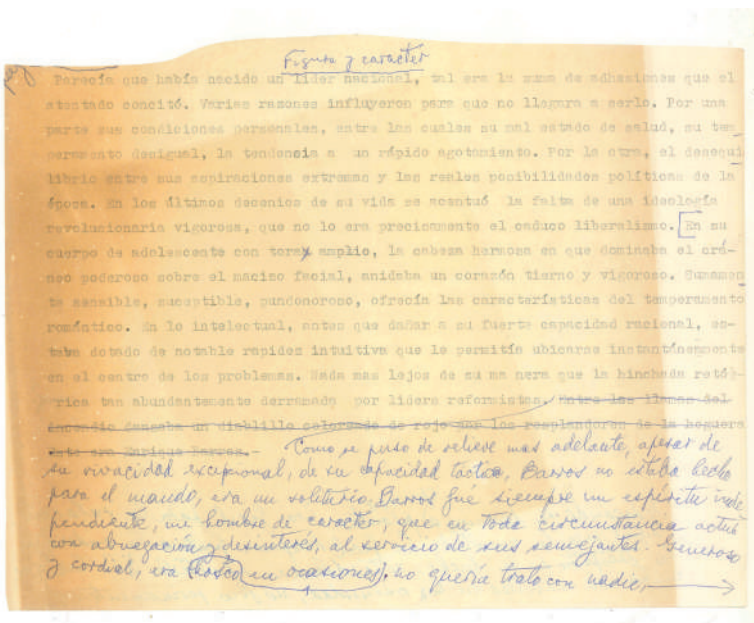 Figura y caracter
Parecía que había nacido un lider nacional, tal era la suma de adhesiones que el
atentado concitó. Varias razones influyeron para que no llegara a serlo. Por una
parte sus condiciones personales, entre las cuales su mal estado de salud, su tem
peramento desigual, la tendencia a un rápido agotamiento. Por la otra, el desequi
librio entre sus aspiraciones extremas y las reales posibilidades políticas de la
época. En los últimos decenios de su vida se acentuó la falta de una ideología
revolucionaria vigorosa, que no lo era precisamente el caduco liberalismo. [En su
cuerpo de adolescente con torax amplio, la cabeza hermosa en que dominaba el crá-
neo poderoso sobre el macizo facial, anidaba un corazón tierno y vigoroso. Sumamen
te sensible, suceptible, pundonoroso, ofrecía las características del temperamento
romántico. En lo intelectual, antes que dañar a su fuerte capacidad racional, es-
taba dotado de notable rapidez intuitiva que le permitía ubicarse instantáneamente
en el centro de los problemas. Nada mas lejos de su ma nera que la hinchada retó-
rica tan abundantemente derramada por lideres reformistas. Entre las llamas del
incendio danzaba un diablillo coloreado de rojo por los resplandores de la hoguera
Este era Enrique Barros.- Como se puso de relieve mas adelante, apesar de
su vivacidad excepcional, de su capacidad tactica, Barros no estaba hecho
para el mando, era un solitario. Barros fue siempre un espíritu inde
pendiente, un hombre de caracter, que en toda circunstancia actuó
con abnegación y desinterés, al servicio de sus semejantes. Generoso
y cordial, era hosco en ocasiones, no quería trato con nadie,